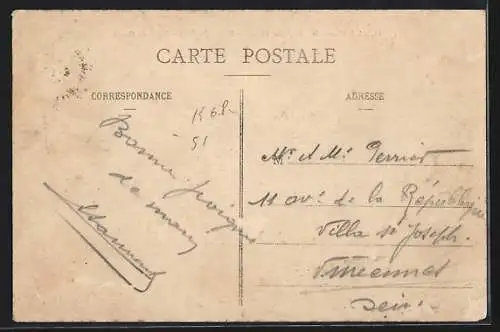 CARTE POSTALE
CORRESPONDANCE
ADRESSE
51
Bonne
de
Mr & Me Perrier
11 av. de la République
Villa St Joseph
Vincennes
Seine